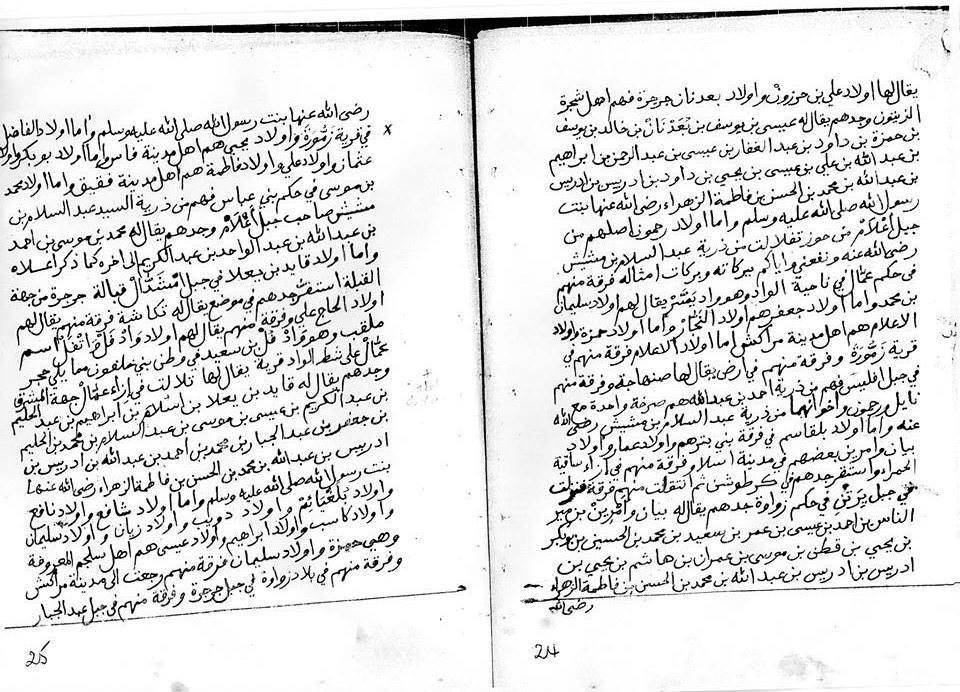 يقال لها اولاد علي بن حرزون واولاد بعدنان جرجرة فهم اهل شجرة
الزيتون وجدهم يقال له عيسى بن يوسف بن بَعْدَنَانْ بن خالد بن يوسف
بن حمزة بن داود بن عبد الغفار بن عيسى بن عبد الرحمن بن ابراهيم
بن عبد الله بن علي بن عيسى بن يحيى بن داود بن ادريس بن ادريس
بن عبد الله بن محمد بن الحسن بن فاطمة الزهراء رضى الله عنها بنت
رسول الله صلى الله عليه وسلم واما اولاد رحمون اصلهم من
جبل اعْلَامْ من حوز تفلالت من ذرية عبد السلام بن مشيش
رضى الله عنه ونفعنى واياكم ببركاته وبركات امثاله فرقة منهم
في حكم عمال في ناحية الواد وهو واد يقال لهم اولاد سليمان
بن محمد واما اولاد جعفر هم اولاد النجار واما اولاد حمزة واولاد
الاعلام هم اهل مدينة مراكش اما اولاد الاعلام فرقة منهم في
قرية زَمُّورَة وفرقة منهم في ارض يقال لها صنهاجة وفرقة منهم
في جبل افليس فهم من ذرية احمد بن عبد الله هم صرخة واحدة مع
نايل ورحمون واخوانهما من ذرية عبد السلام بن مشيش رضى الله
عنه واما اولاد بلقاسم في فرقة بني يترهم واولاد عمار واولاد
بيان وامرين بعضهم في مدينة اسلا وفرقة منهم في ازاء ساقية
الحمراء واستقر جدهم في كرطوشن ثم انتقلت منهم فرقة فنزلت
في جبل في حكم زواوة جدهم يقال له بيان وامرين بن
الناس بن احمد بن عيسى بن عمر بن سعيد بن محمد بن الحسين بن
بن يحيى بن قطن بن موسى بن عمران بن هاشم بن يحيى بن
ادريس بن ادريس بن عبد الله بن محمد بن الحسن بن فاطمة الزهراء
رضى الله
24
رضى الله عنها بنت رسول الله صلى الله عليه وسلم واما اولاد الفاضل
x في قرية زَمُّورَة واولاد يحيى هم اهل مدينة فاس واما اولاد بوبكر واولاد
عثمان واولاد علي واولاد فاطمة هم اهل مدينة فقيق واما اولاد محمد
بن موسى في حكم بني عباس فهم من ذرية السيد عبد السلام بن
مشيش صاحب جبل اعْلَامْ وجدهم يقال له محمد بن موسى بن احمد
بن عبد الله بن عبد الواحد بن عبد الكريم الى اخره كما ذكر اعلاه
واما اولاد قايد بن يعلا في جبل امْشَدَّالْ قبالة جرجرة من جهة
القبلة استقر جدهم في موضع يقال له تكاشة فرقة منهم يقال لهم
اولاد الحاج علي وفرقة منهم يقال لهم اولاد وَادْ قَلْ اسم
ملقب وهو وَادْ قَلْ بن سعيد في وطن بني خلفون مما يلي حجر
عمال على شط الواد قرية يقال لها تلالت في ازاء عمال جهة المشرق
وجدهم يقال له قايد بن يعلا بن اسلام بن ابراهيم بن عبد الحليم
بن عبد الكريم بن عيسى بن موسى بن عبد السلام بن محمد بن الحليم
بن جعفر بن عبد الجبار بن محمد بن احمد بن عبد الله بن ادريس بن
ادريس بن عبد الله بن محمد بن الحسن بن فاطمة الزهراء رضى الله عنها
بنت رسول الله صلى الله عليه وسلم واما اولاد شافع واولاد نافع
واولاد واولاد دويب واولاد زيان واولاد سليمان
واولاد كاسب واولاد ابراهيم واولاد عيسى هم اهل سلجم المعروفة
وهي حمزة واولاد سليمان فرقة منهم رجعت الى مدينة مراكش
وفرقة منهم في بلاد زواوة في جبل جرجرة وفرقة منهم في جبل عبد الجبار
25